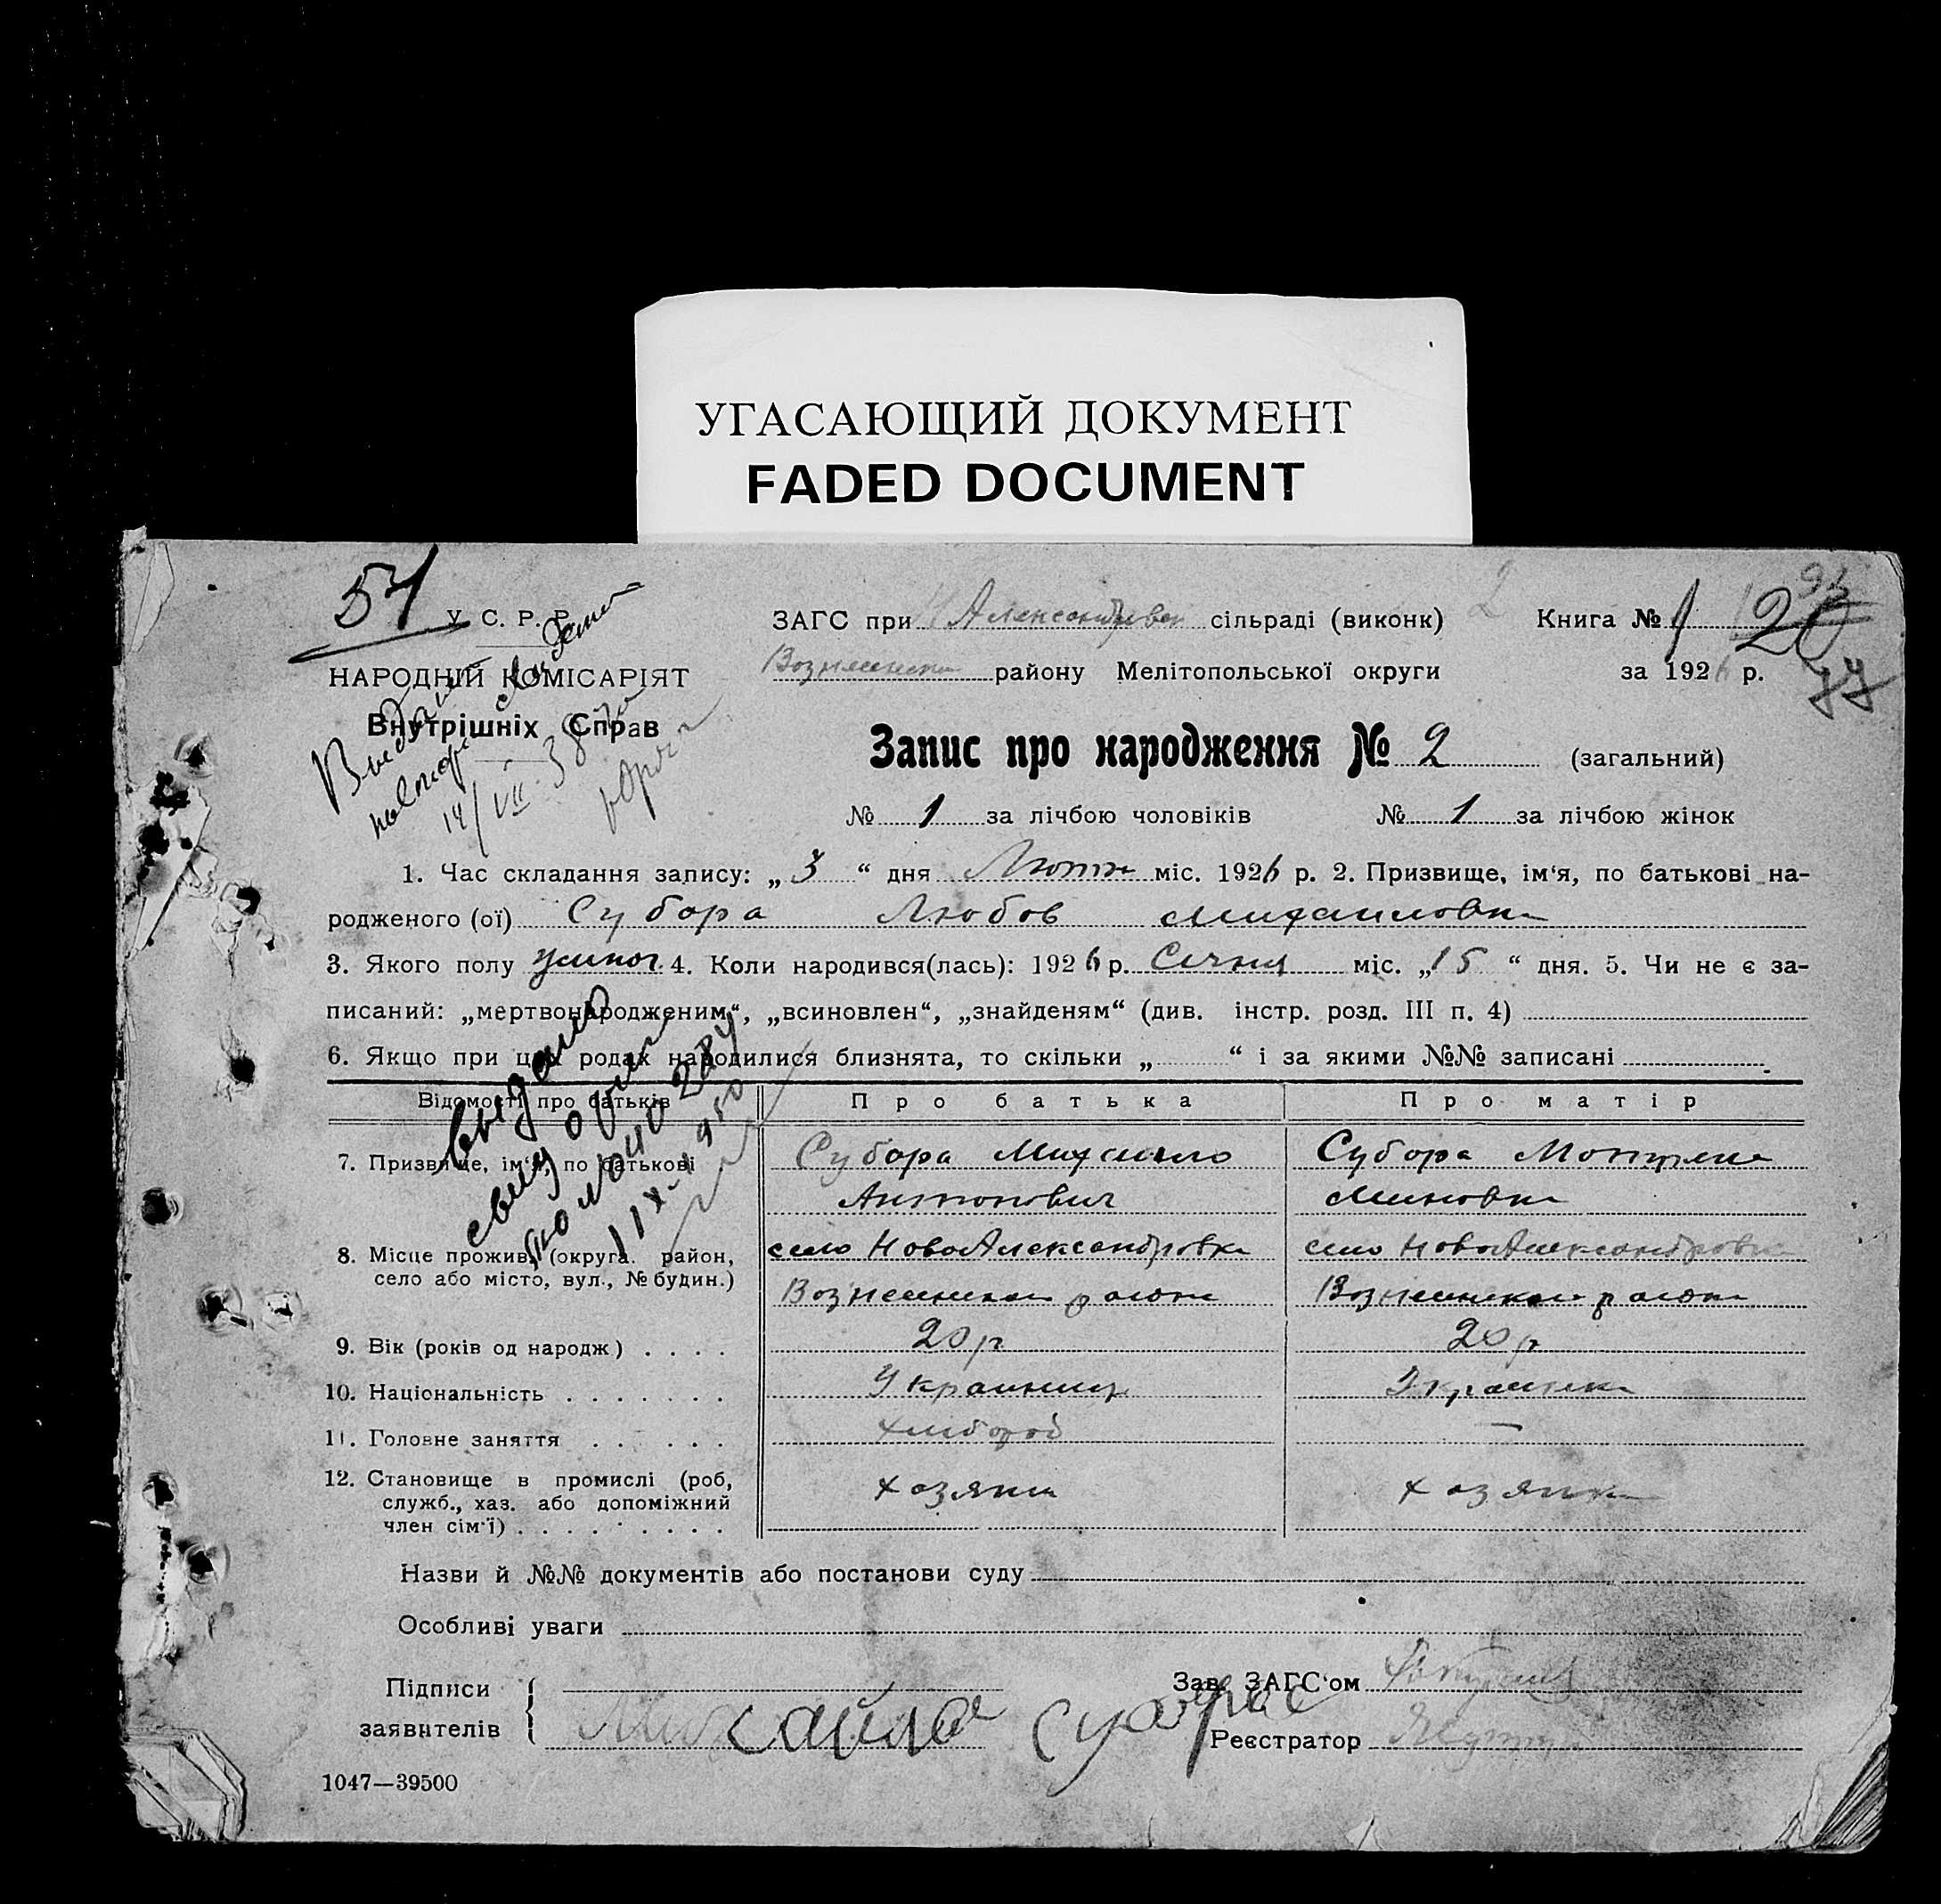 УГАСАЮЩИЙ ДОКУМЕНТ
FADED DOCUMENT
54
У. С. Р. Р.
НАРОДНІЙ КОМІСАРІЯТ
Внутрішніх Справ
14/VII-38
ЗАГС при Н Александровск сільраді (виконк) 2 Книга № 1 20
районy Мелітопольської округи за 1926 р. 77
Запис про народження № 2 (загальний)
№ 1 за лічбою чоловіків № 1 за лічбою жінок
1. Час складання запису: „ 3 “ дня Лютня міс. 1926 р. 2. Призвище, ім‘я, по батькові на-
родженого (ої) Субора Любов Михаиловна
3. Якого полу жиноч. 4. Коли народився(лась): 1926 р. Сичня міс. „15 “ дня. 5. Чи не є за-
писаний: „мертвонародженим“, „всиновлен“, „знайденям“ (див. інстр. розд. III п. 4)
6. Якщо при цих родах народилися близнята, то скільки „ “ і за якими №№ записані
Відомості про батьків Про батька Про матір
7. Призвище, ім‘я, по батькові Субора Михаило Субора
Антонович Миновна
8. Місце прожив. (округа. район, село НовоАлександровка село НовоАлександровка
село або місто, вул., № будин.) района района
9. Вік (років од народж) . . . . 20 р 20 р
10. Національність . . . . . . . Украинец Украинка
11. Головне заняття . . . . . . хлибороб —
12. Становище в промислі (роб, хозяин хозяйка
служб., хаз. або допоміжний
член сім‘ї) . . . . . . . . .
выдано
Назви й №№ документів або постанови суду
Особливі уваги
Підписи
заявителів
Михайло Субора
Зав. ЗАГС‘ом
Реєстратор
1047—39500